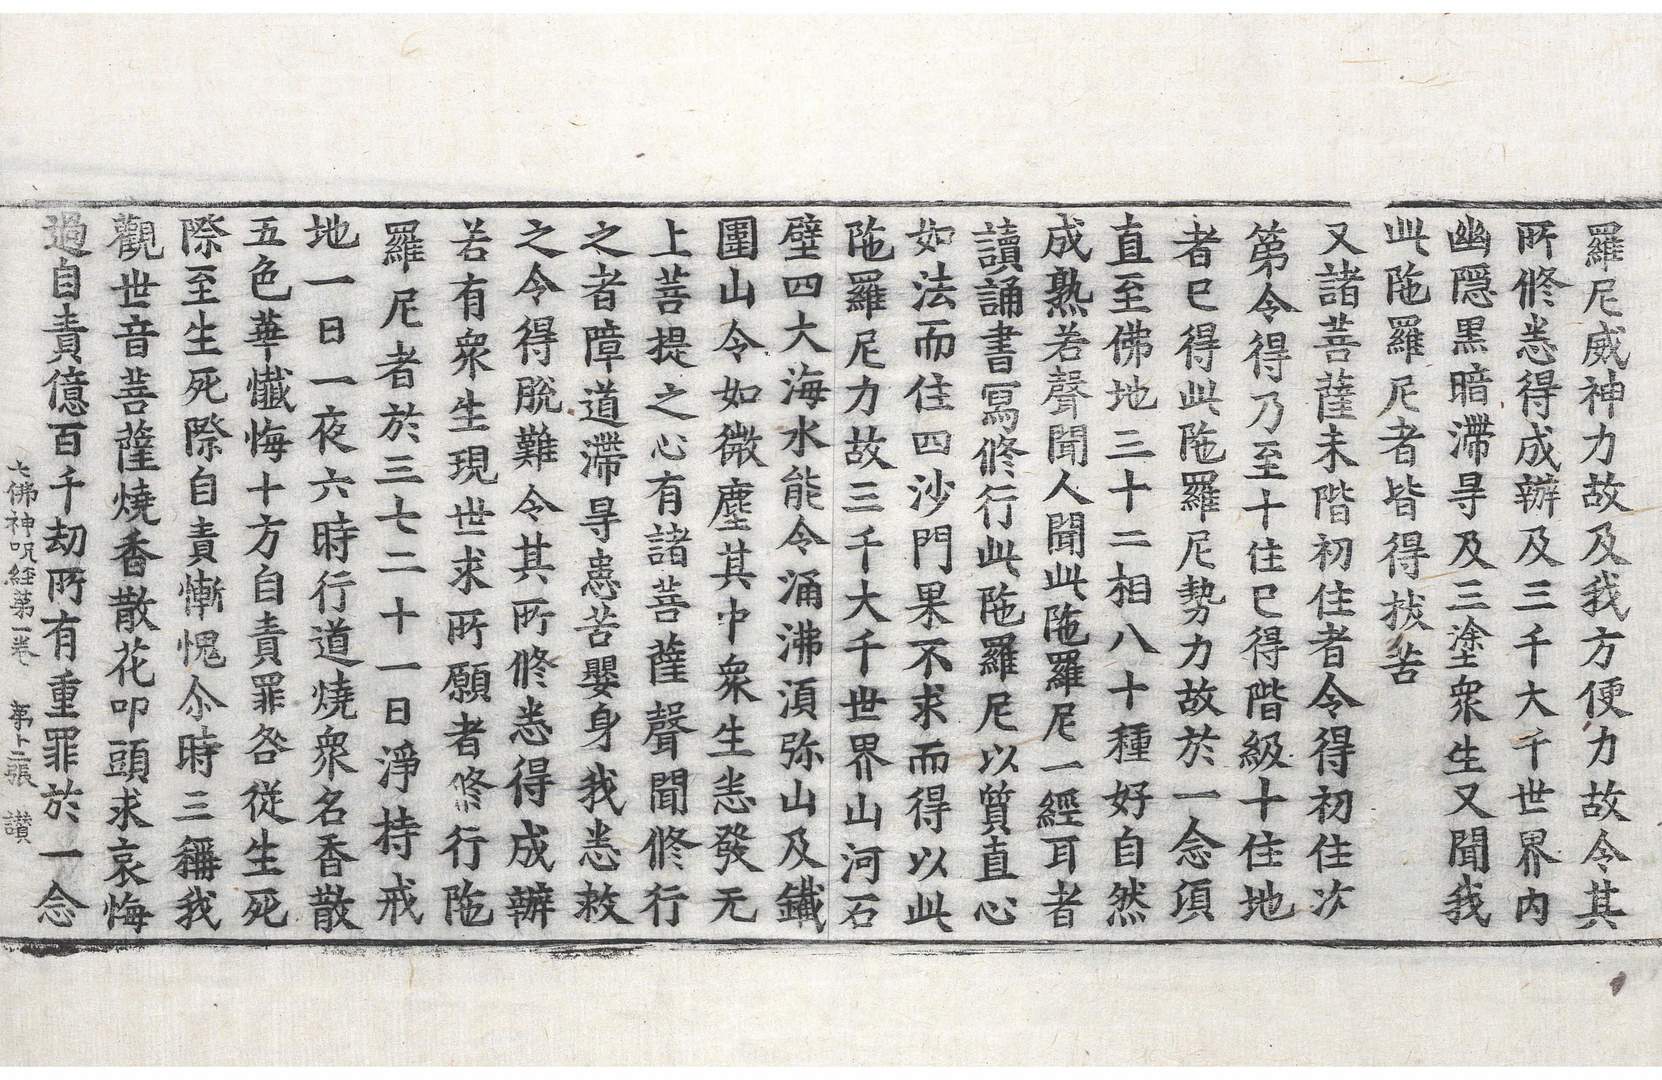 羅尼威神力故及我方便力故令其
所修悉得成辦及三千大千世界內
幽隱黑暗滯㝵及三塗衆生又聞我
此陁羅尼者皆得拔苦
又諸菩薩未階初住者令得初住次
第令得乃至十住已得階級十住地
者已得此陁羅尼勢力故於一念頃
直至佛地三十二相八十種好自然
成熟若聲聞人聞此陁羅尼一經耳者
讀誦書寫修行此陁羅尼以質直心
如法而住四沙門果不求而得以此
陁羅尼力故三千大千世界山河石
壁四大海水能令涌沸湏弥山及鐵
圍山令如微塵其中衆生悉發无
上菩提之心有諸菩薩聲聞修行
之者障道滯㝵患苦嬰身我悉救
之令得脫難令其所修悉得成辦
若有衆生現世求所願者修行陁
羅尼者於三七二十一日淨持戒
地一日一夜六時行道燒衆名香散
五色華懺悔十方自責罪咎從生死
際至生死際自責慚愧尒時三稱我
觀世音菩薩燒香散花叩頭求哀悔
過自責億百千劫所有重罪於一念
七佛神呪經第一卷 第十二張 讃